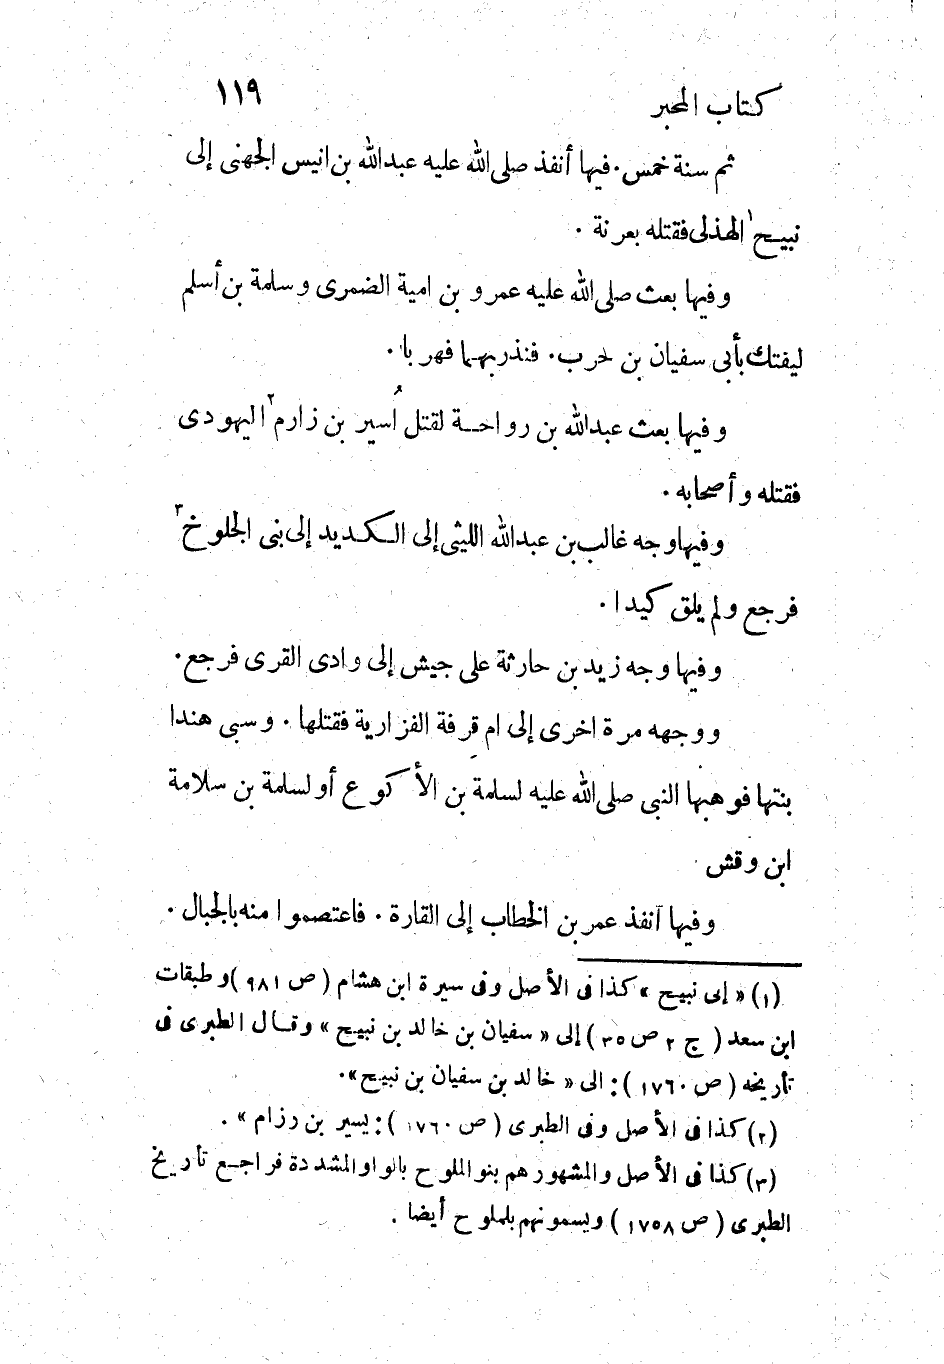 كتاب المحبر ١١٩
ثم سنة خمس. فيها أنفذ صلى الله عليه عبدالله بن انيس الجهنى إلى
نبيح١ الهذلى فقتله بعرنة .
وفيها بعث صلى الله عليه عمرو بن امية الضمرى وسلمة بن أسلم
ليفتك بأبى سفيان بن حرب. فنذر بهما فهربا.
وفيها بعث عبدالله بن رواحة لقتل أُسير بن زارم٢ اليهودى
فقتله وأصحابه .
وفيها وجه غالب بن عبدالله الليثى إلى الكديد إلى بنى الجلوخ٣
فرجع ولم يلق كيدا .
وفيها وجه زيد بن حارثة على جيش إلى وادى القرى فرجع.
ووجهه مرة اخرى إلى ام قِرفة الفزارية فقتلها . وسبى هندا
بنتها فوهبها النبى صلى الله عليه لسلمة بن الأكوع أو لسلمة بن سلامة
ابن وقش
وفيها آنفذ عمر بن الخطاب إلى القارة . فاعتصموا منه بالجبال .
(١) « إلى نبيح » كذا فى الأصل وفى سيرة ابن هشام ( ص ٩٨١ ) وطبقات
ابن سعد ( ج ٢ ص ٣٥ ) إلى « سفيان بن خالد بن نبيح » وقال الطبرى فى
تأريخه ( ص ١٧٦٠ ): الى « خالد بن سفيان بن نبيح ».
(٢) كذا فى الأصل وفى الطبرى ( ص ١٧٦٠ ): يسير بن رزام » .
(٣) كذا فى الأصل والمشهور هم بنو الملوح بالواو المشددة فراجع تأريخ
الطبرى ( ص ١٧٥٨ ) ويسمونهم بلملوح أيضا .